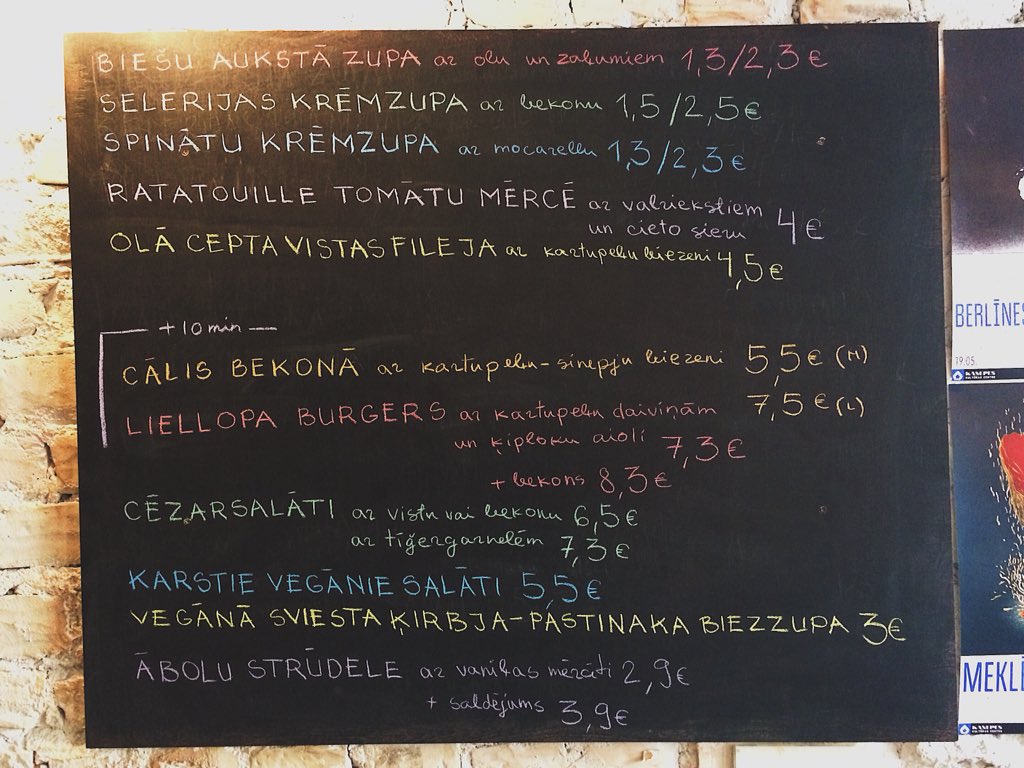 BIEŠU AUKSTĀ ZUPA ar olu un zaļumiem 1,3/2,3€
SELERIJAS KRĒMZUPA ar bekonu 1,5/2,5€
SPINĀTU KRĒMZUPA ar mocarellu 1,3/2,3€
RATATOUILLE TOMĀTU MĒRCĒ ar valriekstiem
un cieto sieru 4€
OLĀ CEPTA VISTAS FILEJA ar kartupeļu biezeni 4,5€
+10 min
CĀLIS BEKONĀ ar kartupeļu-sinepju biezeni 5,5€ (M)
7,5€ (L)
LIELLOPA BURGERS ar kartupeļu daiviņām
un ķiploku aioli 7,3€
+ bekons 8,3€
CĒZARSALĀTI ar vistu vai bekonu 6,5€
ar tīģergarnelēm 7,3€
KARSTIE VEGĀNIE SALĀTI 5,5€
VEGĀNĀ SVIESTA ĶIRBJA-PASTINAKA BIEZZUPA 3€
ĀBOLU STRŪDELE ar vaniļas mērcīti 2,9€
+ saldējums 3,9€
BERLĪNES
19.05.
KANEPES
MEKLĒ
KANEPES